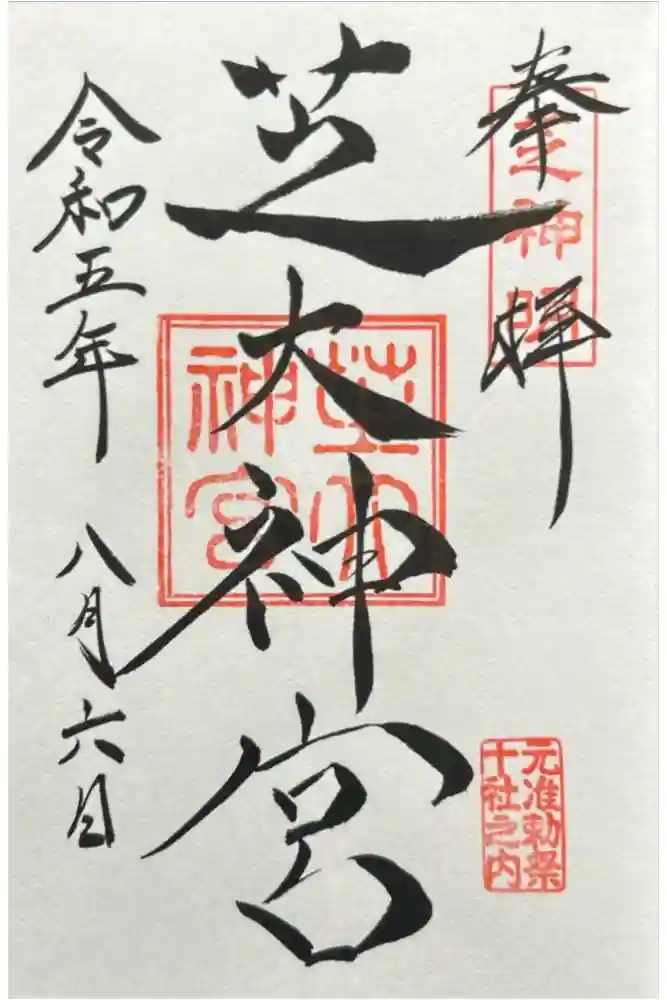 奉拝
芝神明
芝大神宮
芝大
神宮
元准勅祭
十社之内
令和五年
八月六日